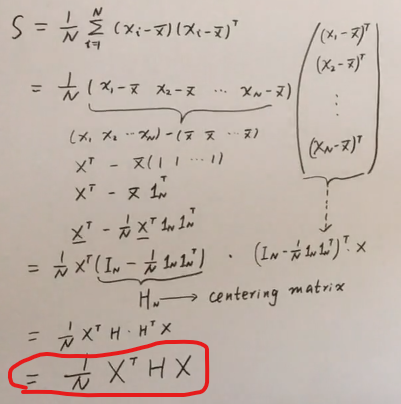 S = 1/N Σ_{i=1}^{N} (x_i - x̄)(x_i - x̄)^T
= 1/N (x_1 - x̄  x_2 - x̄  ⋯  x_N - x̄) ( (x_1 - x̄)^T
(x_2 - x̄)^T
⋮
(x_N - x̄)^T )
(x_1 x_2 ⋯ x_N) - (x̄ x̄ ⋯ x̄)
X^T - x̄(1 1 ⋯ 1)
X^T - x̄ 1_N^T
X^T - 1/N X^T 1_N 1_N^T
= 1/N X^T (I_N - 1/N 1_N 1_N^T) · (I_N - 1/N 1_N 1_N^T)^T · X
H_N → centering matrix
= 1/N X^T H · H^T X
= 1/N X^T H X